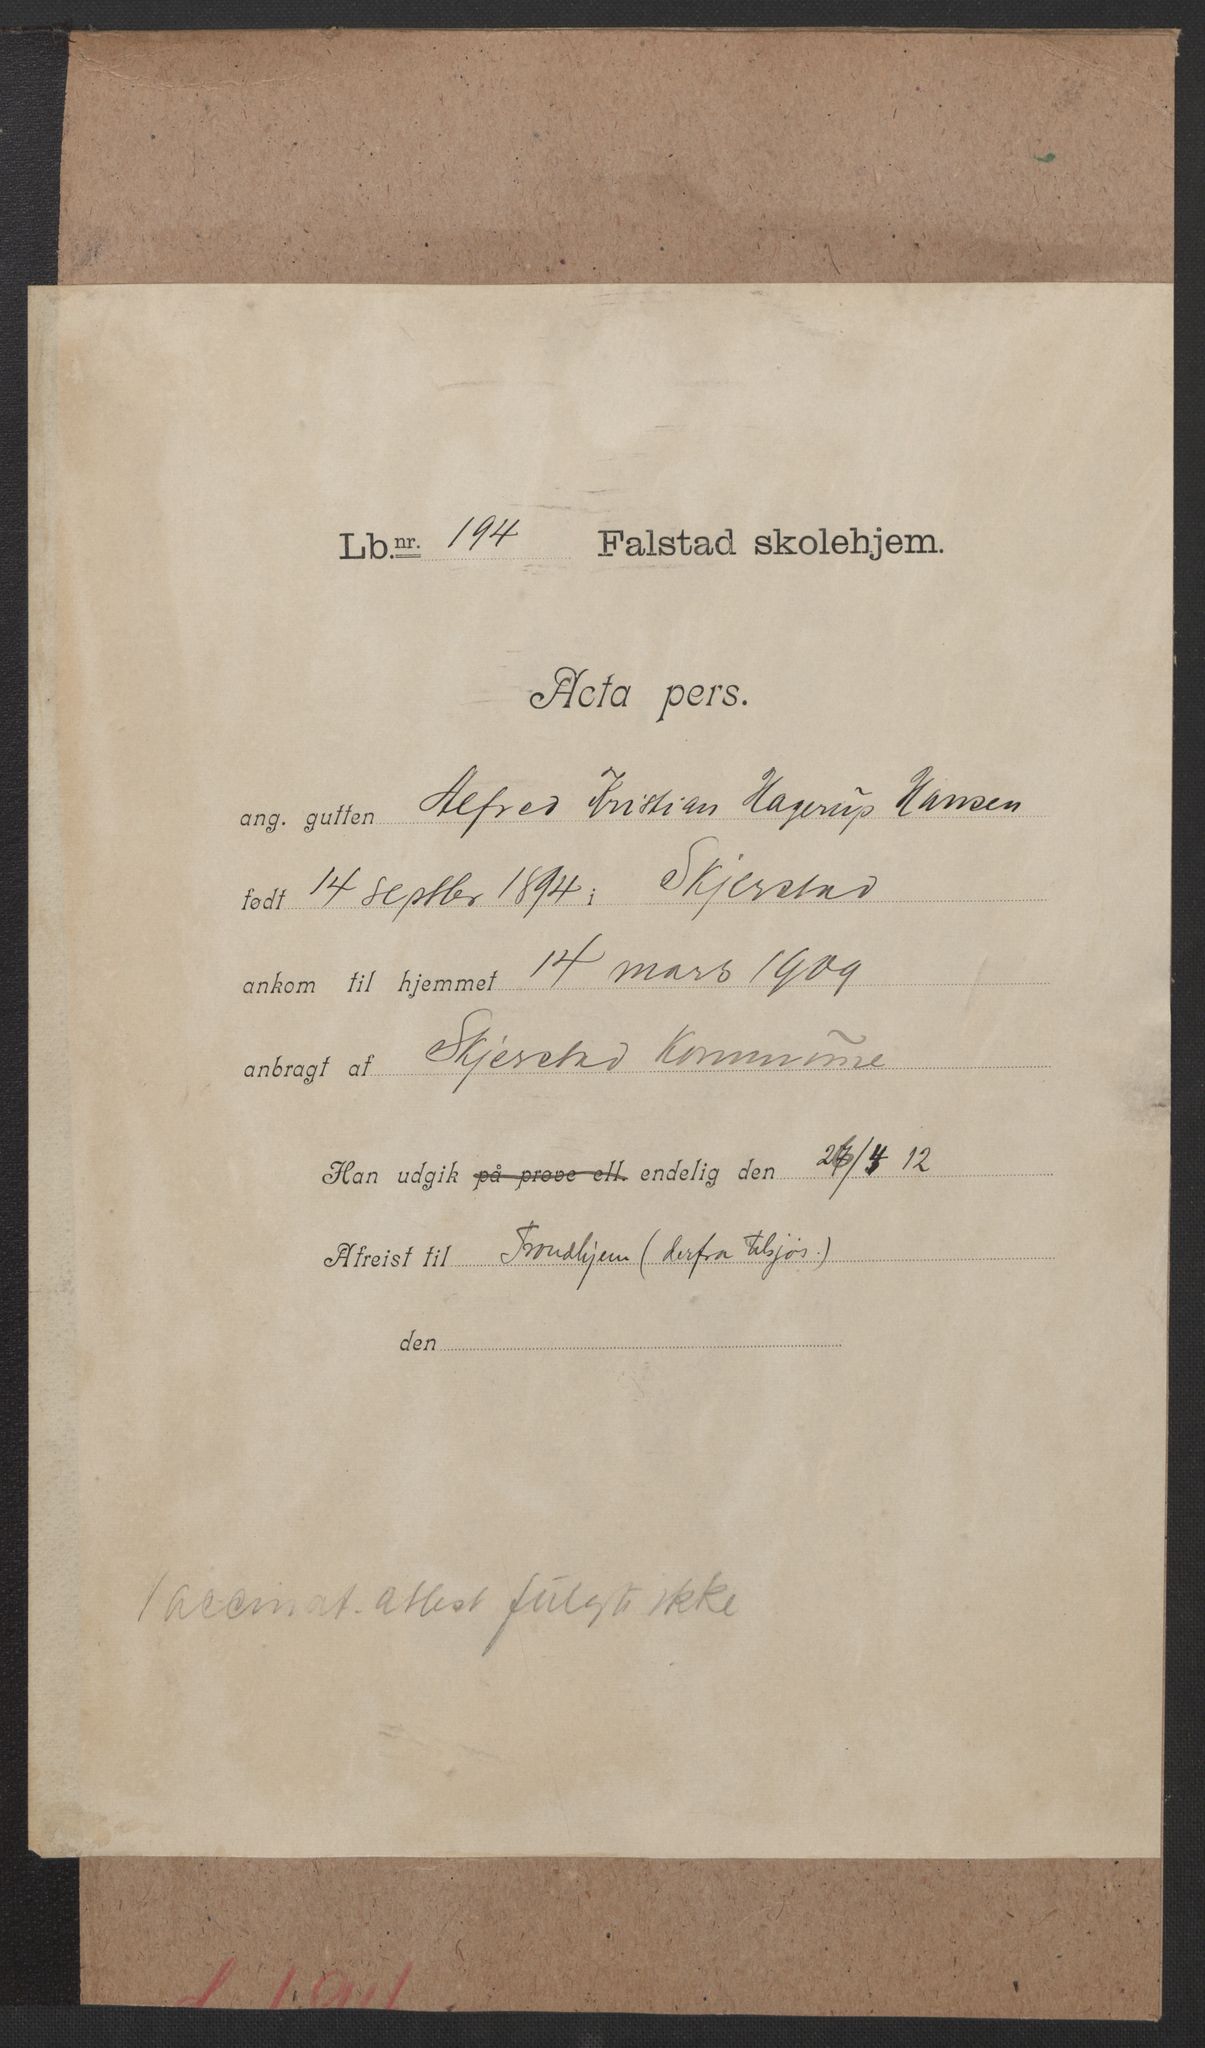 Lb.nr. 194 Falstad skolehjem.
Acta pers.
ang. gutten Alfred Kristian Hagerup Hansen
født 14 septbr 1894 i Skjerstad
ankom til hjemmet 14 mars 1909
anbragt af Skjerstad Kommune
Han udgik på prøve ell. endelig den /4 12
Afreist til Trondhjem (derfra tilsjøs.)
den
Vaccinat. attest fulgte ikke